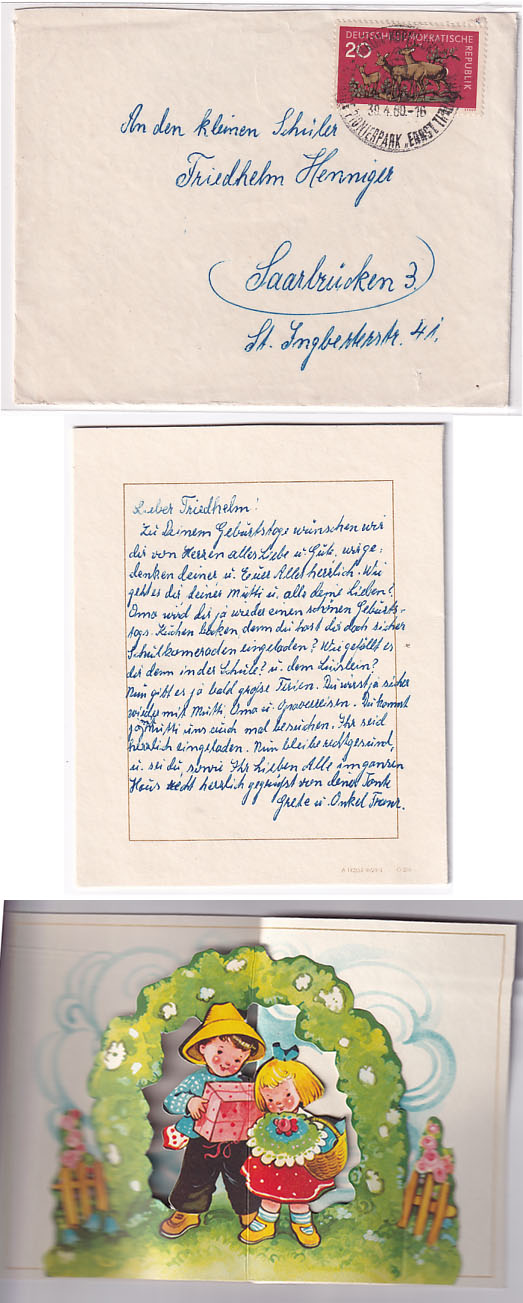 DEUTSCHE DEMOKRATISCHE
20
REPUBLIK
30.4.60.-16
PIONIERPARK „ERNST
An den kleinen Schüler
Friedhelm Henniger
Saarbrücken 3.
St. Ingberterstr. 41.
Lieber Friedhelm!
Zu Deinem Geburtstage wünschen wir
dir von Herzen alles Liebe u. Gute, wir ge-
denken deiner u. Euer Aller herzlich. Wie
geht es dir deiner Mutti u. alle deine Lieben?
Oma wird dir ja wieder einen schönen Geburts-
tags-Kuchen backen, denn du hast dir doch sicher
Schulkameraden eingeladen? Wie gefällt es
dir denn in der Schule? u. dem
Nun gibt es ja bald große Ferien. Du wirst ja sicher
wieder mit Mutti, Oma u. Opa verreisen. Du kannst
ja mit Mutti uns auch mal besuchen. Ihr seid
herzlich eingeladen. Nun bleibe recht gesund,
u. sei du sowie Ihr Lieben Alle im ganzen
Haus recht herzlich gegrüßt von deiner Tante
Grete u. Onkel Franz.